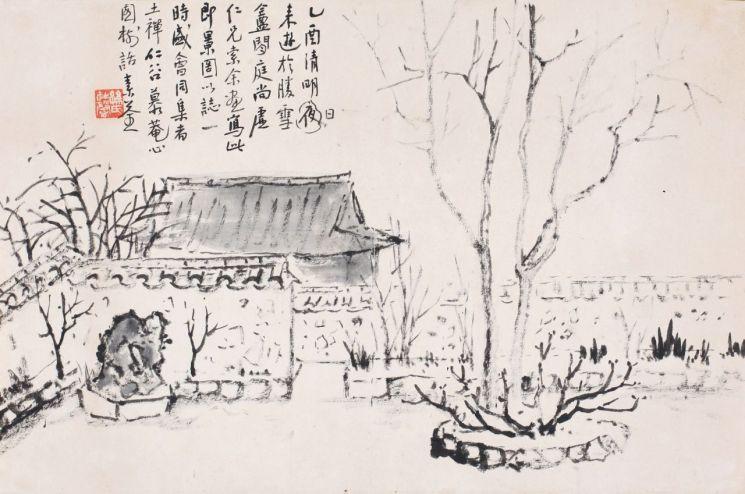 乙酉清明夜日
来遊於勝雪
盦閒庭尚虛
仁兄索余畫寫此
即景圖以誌一
時盛會同集者
土禪仁谷慕菴心
園樹話素